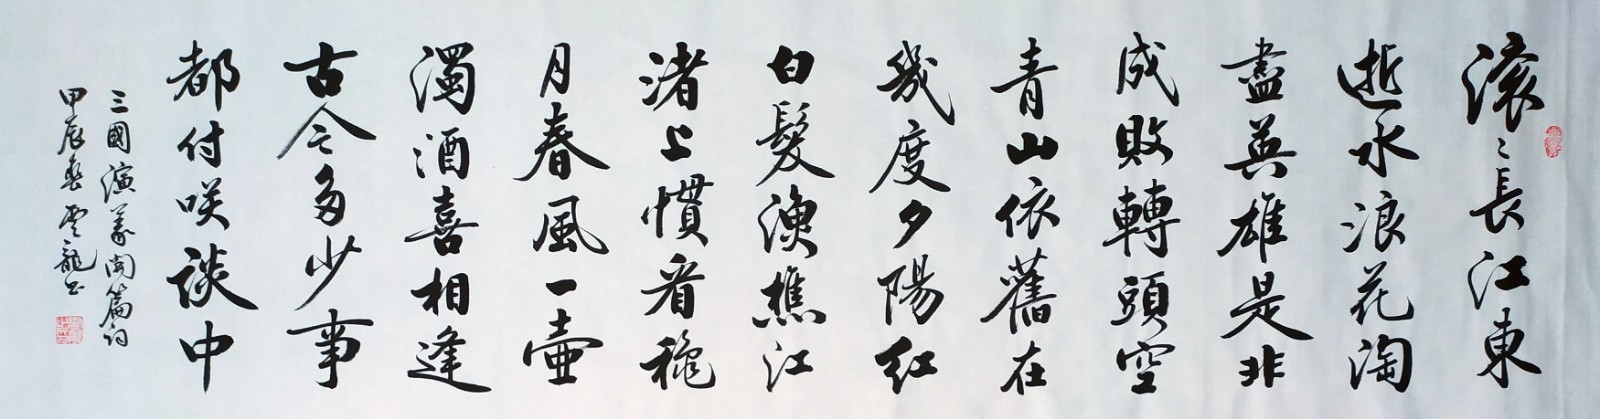 滚〻長江東
逝水浪花淘
盡英雄是非
成敗轉頭空
青山依舊在
幾度夕陽紅
白髮漁樵江
渚上慣看穐
月春風一壺
濁酒喜相逢
古今多少事
都付咲談中
三國演義開篇詞
甲辰春雲龍書